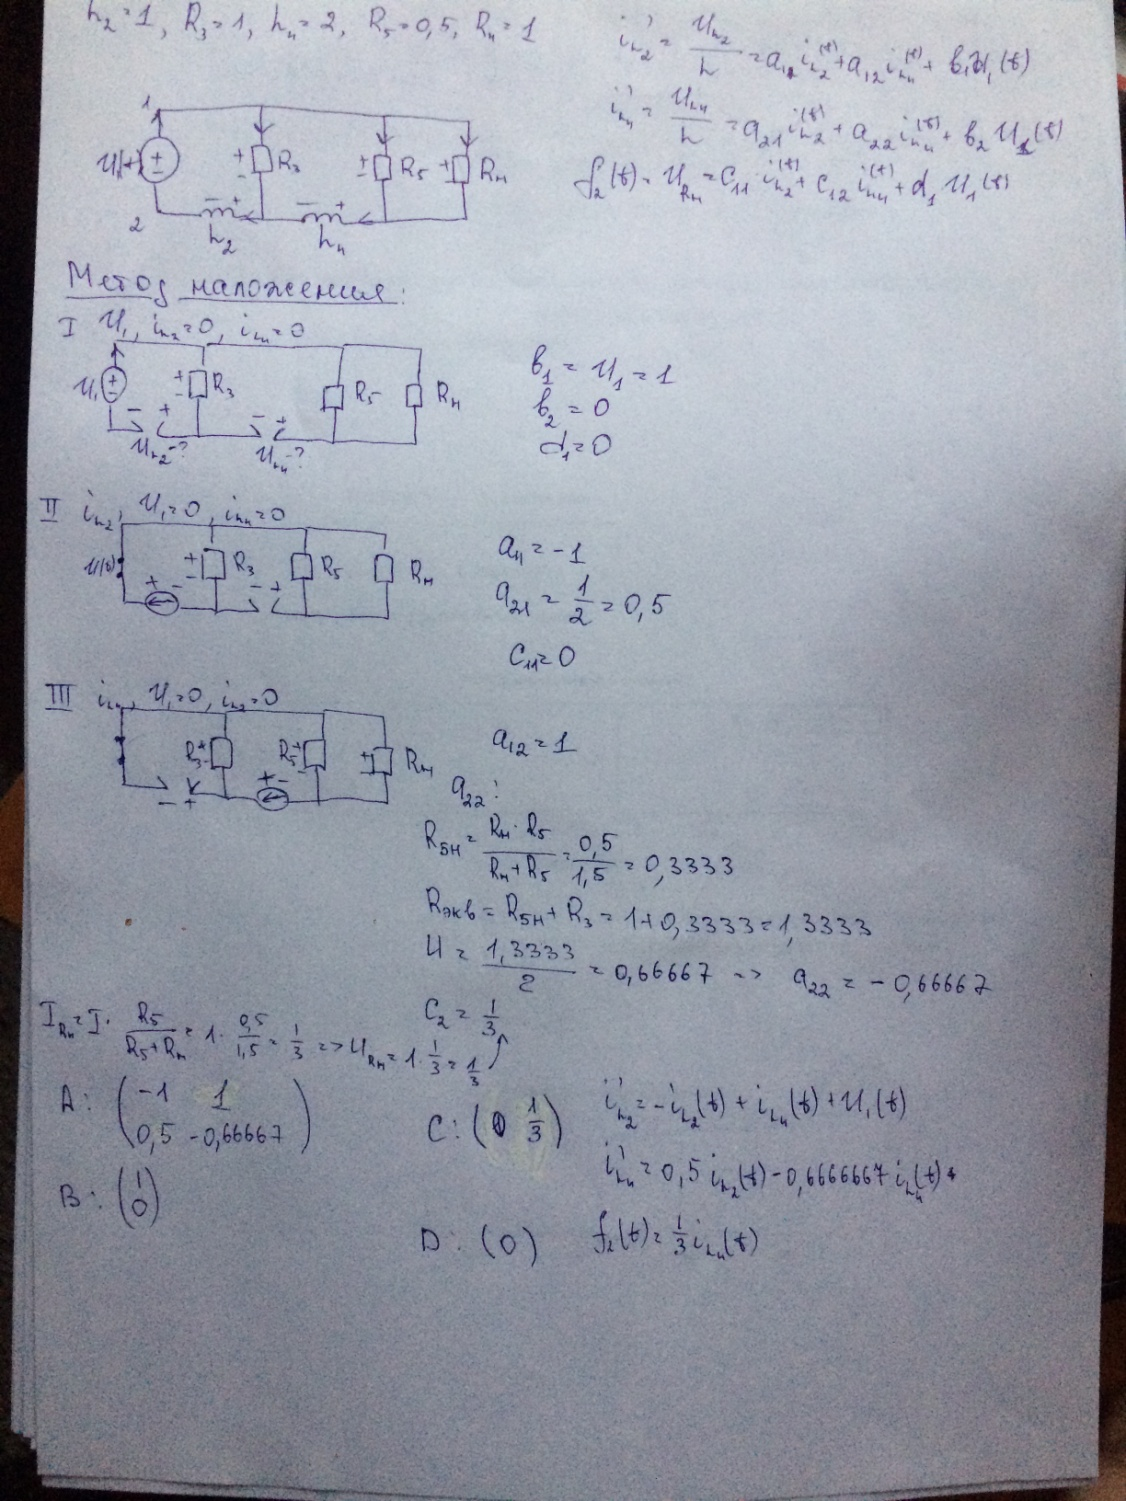 L₂=1, R₃=1, L₄=2, R₅=0,5, Rₙ=1
i'_{L₂} = U_{L₂}/L = a₁₁ i_{L₂}(t) + a₁₂ i_{L₄}(t) + b₁U₁(t)
i'_{L₄} = U_{L₄}/L = a₂₁ i_{L₂}(t) + a₂₂ i_{L₄}(t) + b₂U₁(t)
f₂(t) = U_{Rн} = C₁₁ i_{L₂}(t) + C₁₂ i_{L₄}(t) + d₁U₁(t)
1 U₁(t) ± + - R₃ ± R₅ ± Rн
2 - + L₂ - + L₄
Метод наложения:
I U₁, i_{L₂}=0, i_{L₄}=0
U₁ ± + - R₃ R₅ Rн
- + U_{L₂}-? - + U_{L₄}-?
b₁ = U₁ = 1
b₂ = 0
d₁=0
II i_{L₂}, U₁=0, i_{L₄}=0
U(t) + - R₃ R₅ Rн
+ - - +
a₁₁ = -1
a₂₁ = 1/2 = 0,5
C₁₁=0
III i_{L₄}, U₁=0, i_{L₂}=0
R₃ + - R₅ + - ± Rн
- + + -
a₁₂=1
a₂₂:
R₅н = Rн·R₅/(Rн+R₅) = 0,5/1,5 = 0,3333
Rэкв = R₅н + R₃ = 1+0,3333=1,3333
U = 1,3333/2 = 0,66667 => a₂₂ = -0,66667
C₂ = 1/3
I_{Rн}=I· R₅/(R₅+Rн) = 1· 0,5/1,5 = 1/3 => U_{Rн}=1·1/3=1/3
A: (-1 1
0,5 -0,66667)
C: (0 1/3)
i'_{L₂}=-i_{L₂}(t)+i_{L₄}(t)+U₁(t)
i'_{L₄}=0,5 i_{L₂}(t)-0,6666667 i_{L₄}(t)
B: (1
0)
D: (0)
f₂(t)=1/3 i_{L₄}(t)